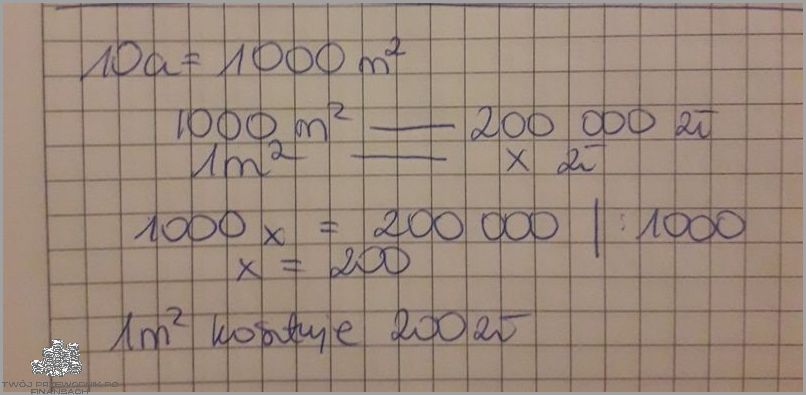 10a = 1000 m²
1000 m² — 200 000 zł
1m² — x zł
1000 x = 200 000 | : 1000
x = 200
1m² kosztuje 200 zł
TWÓJ PRZEWODNIK PO
FINANSACH